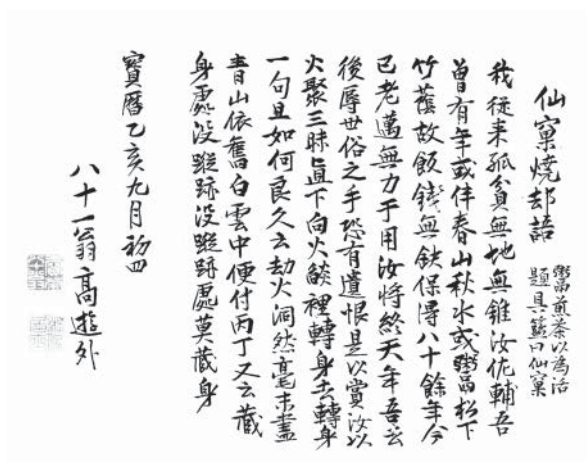 仙窠燒却語
鬻煎茶以為活
題具籃曰仙窠
我従来孤貧無地無錐汝佐輔吾
曽有年或伴春山秋水或鬻松下
竹蔭故飯錢無缺保得八十餘年今
已老邁無力于用汝將終天年吾去
後辱世俗之手恐有遺恨是以賞汝以
火聚三昧直下向火燄裡轉身去轉身
一句且如何良久云劫火洞然毫末盡
青山依舊白雲中便付丙丁又云藏
身處没蹤跡没蹤跡處莫藏身
寶曆乙亥九月初四
八十一翁高遊外